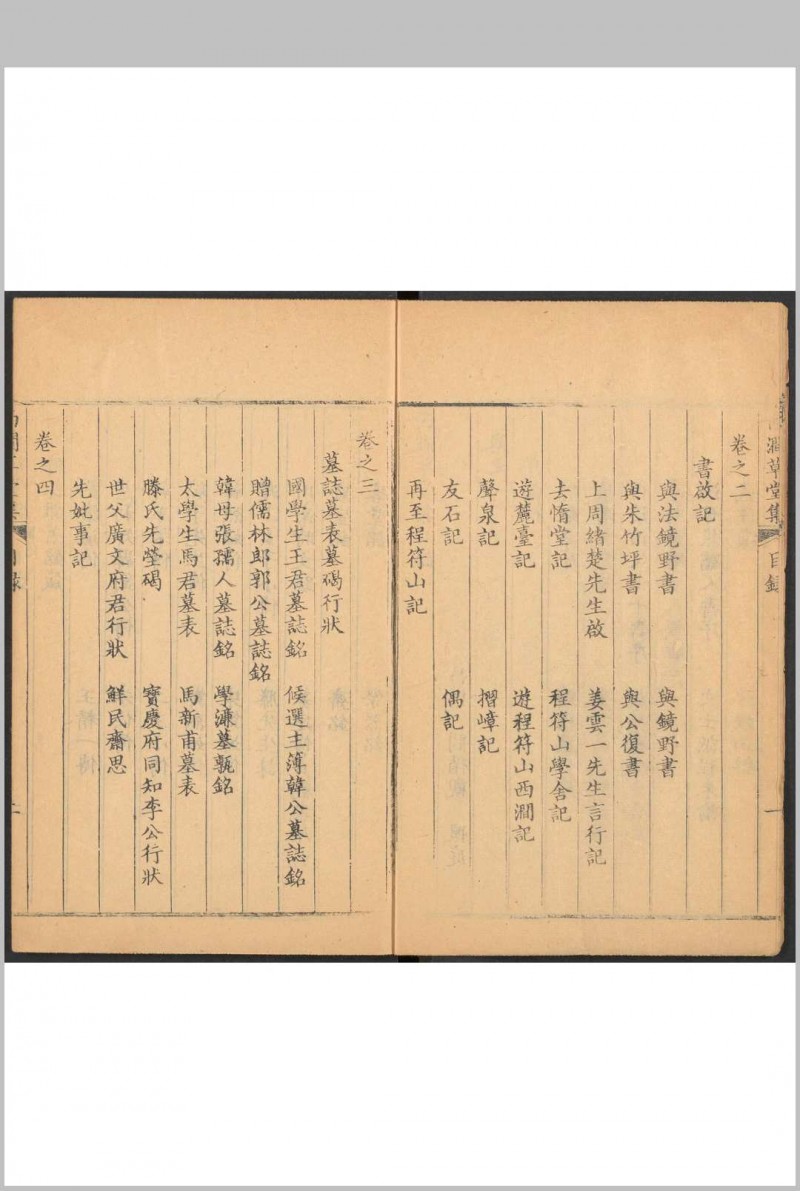 澗草堂集 目錄 一
卷之二
書啟記
與法鏡野書 與鏡野書
與朱竹坪書 與公復書
上周緒楚先生啟 姜雲一先生言行記
去惰堂記 程符山學舍記
遊麓臺記 遊程符山西澗記
聲泉記 摺嶂記
友石記 偶記
再至程符山記
卷之三
墓誌墓表墓碣行狀
國學生王君墓誌銘 候選主簿韓公墓誌銘
贈儒林郎郭公墓誌銘
韓母張孺人墓誌銘 學濂墓甎銘
太學生馬君墓表 馬新甫墓表
滕氏先塋碣 寶慶府同知李公行狀
世父廣文府君行狀 鮮民齋思
先妣事記
卷之四